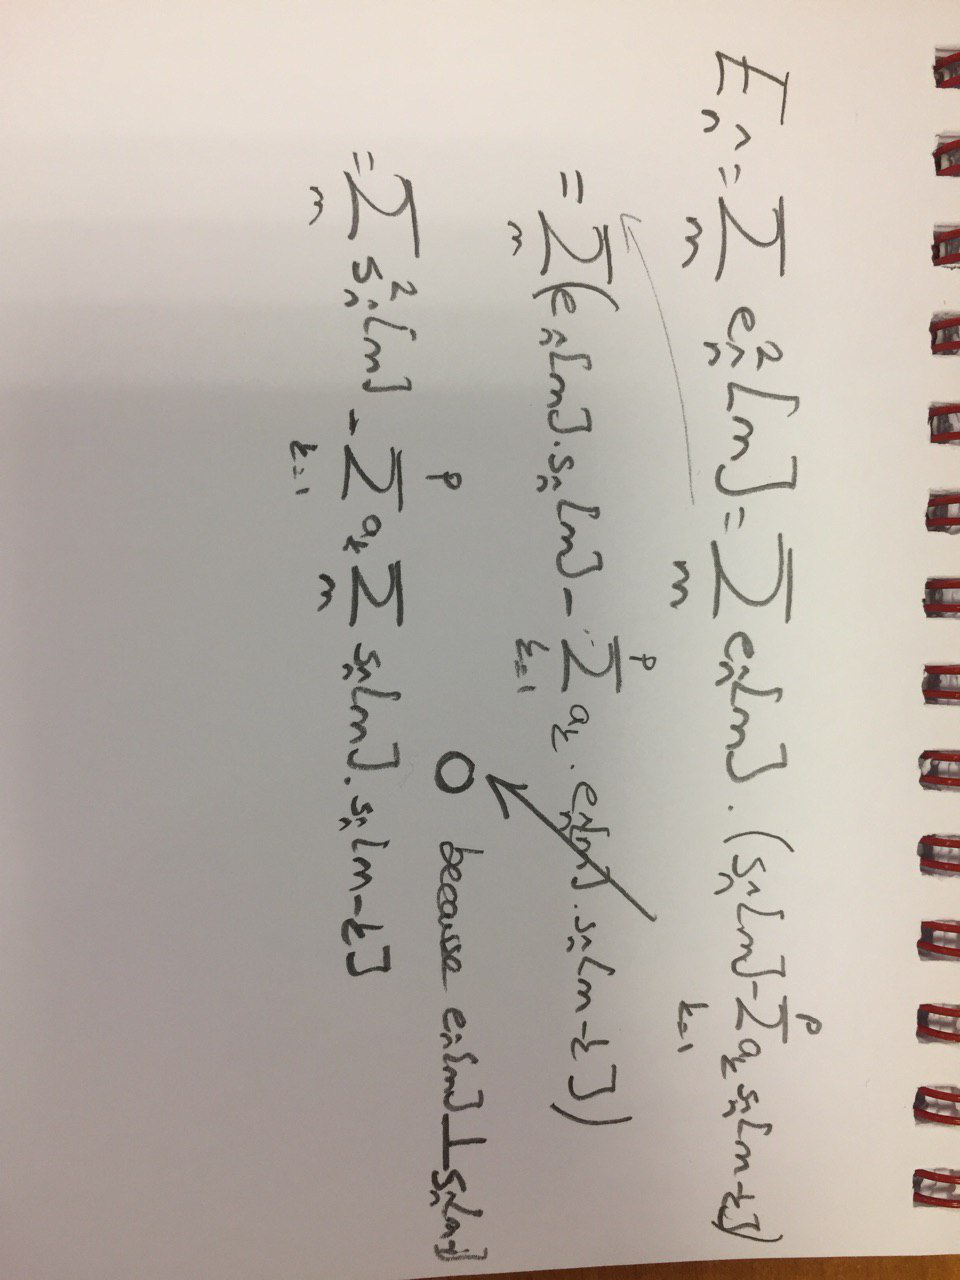 E_n̂ = Σ_m e_n̂²[m] = Σ_m e_n̂[m] · (s_n̂[m] - Σ_{k=1}^{p} a_k s_n̂[m-k])
= Σ_m (e_n̂[m] · s_n̂[m] - Σ_{k=1}^{p} a_k · e_n̂[m] · s_n̂[m-k])
0 because e_n̂[m] ⊥ s_n̂[m-i]
= Σ_m s_n̂²[m] - Σ_{k=1}^{p} a_k Σ_m s_n̂[m] · s_n̂[m-k]